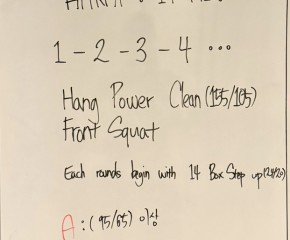 1 - 2 - 3 - 4 ...
Hang Power Clean (155/105)
Front Squat
Each rounds begin with 14 Box Step up (24/20)
A : (95/65) 이상